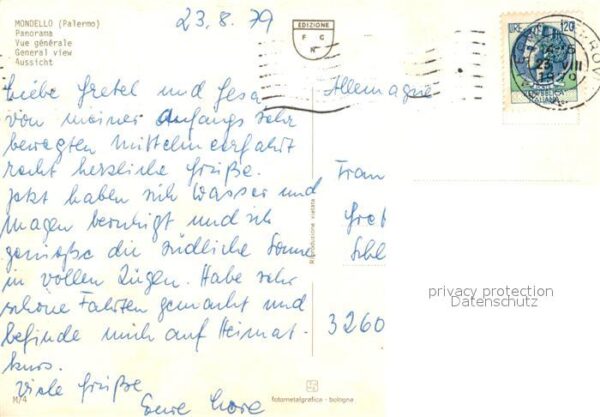 MONDELLO (Palermo)
Panorama
Vue générale
General view
Aussicht
23.8.79
EDIZIONE
F G
N
LIRE 120
Liebe Gretel und Gesa
von meiner Anfangs sehr
bewegten Mittelmeerfahrt
recht herzliche Grüße.
Jetzt haben sich Wasser und
Magen beruhigt und ich
genieße die südliche Sonne
in vollen Zügen. Habe sehr
schöne Fahrten gemacht und
befinde mich auf Heimat-
kurs.
Viele Grüße
Eure Lore
Allemagne
Fram
Gret
Schl
3260
privacy protection
Datenschutz
Riproduzione vietata
M/4
fotometalgrafica - bologna